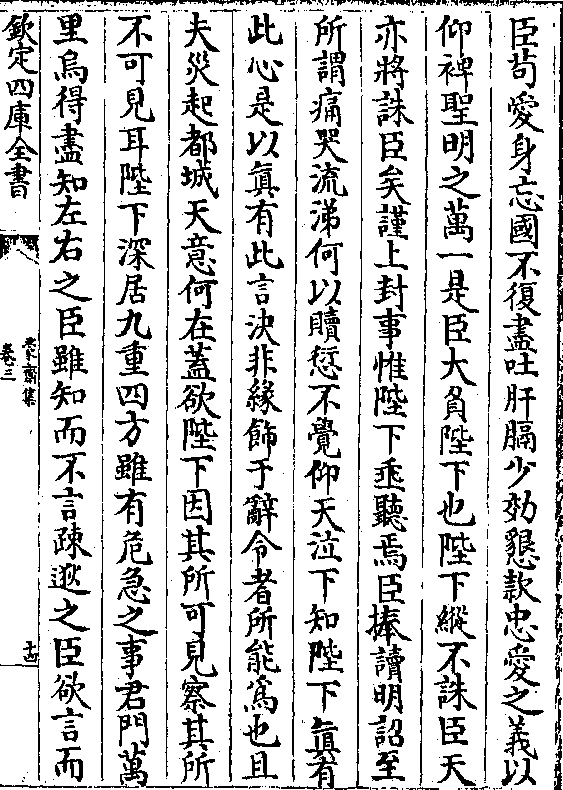 臣苟愛身忘國不復盡吐肝膈少効懇款忠愛之義以
仰裨聖明之萬一是臣大負陛下也陛下縱不誅臣天
亦將誅臣矣謹上封事惟陛下垂聽焉臣捧讀明詔至
所謂痛哭流涕何以贖愆不覺仰天泣下知陛下真有
此心是以真有此言決非緣飾于辭令者所能為也且
夫災起都城天意何在蓋欲陛下因其所可見察其所
不可見耳陛下深居九重四方雖有危急之事君門萬
里烏得盡知左右之臣雖知而不言疎逖之臣欲言而
欽定四庫全書
蒙齋集
卷三
十四